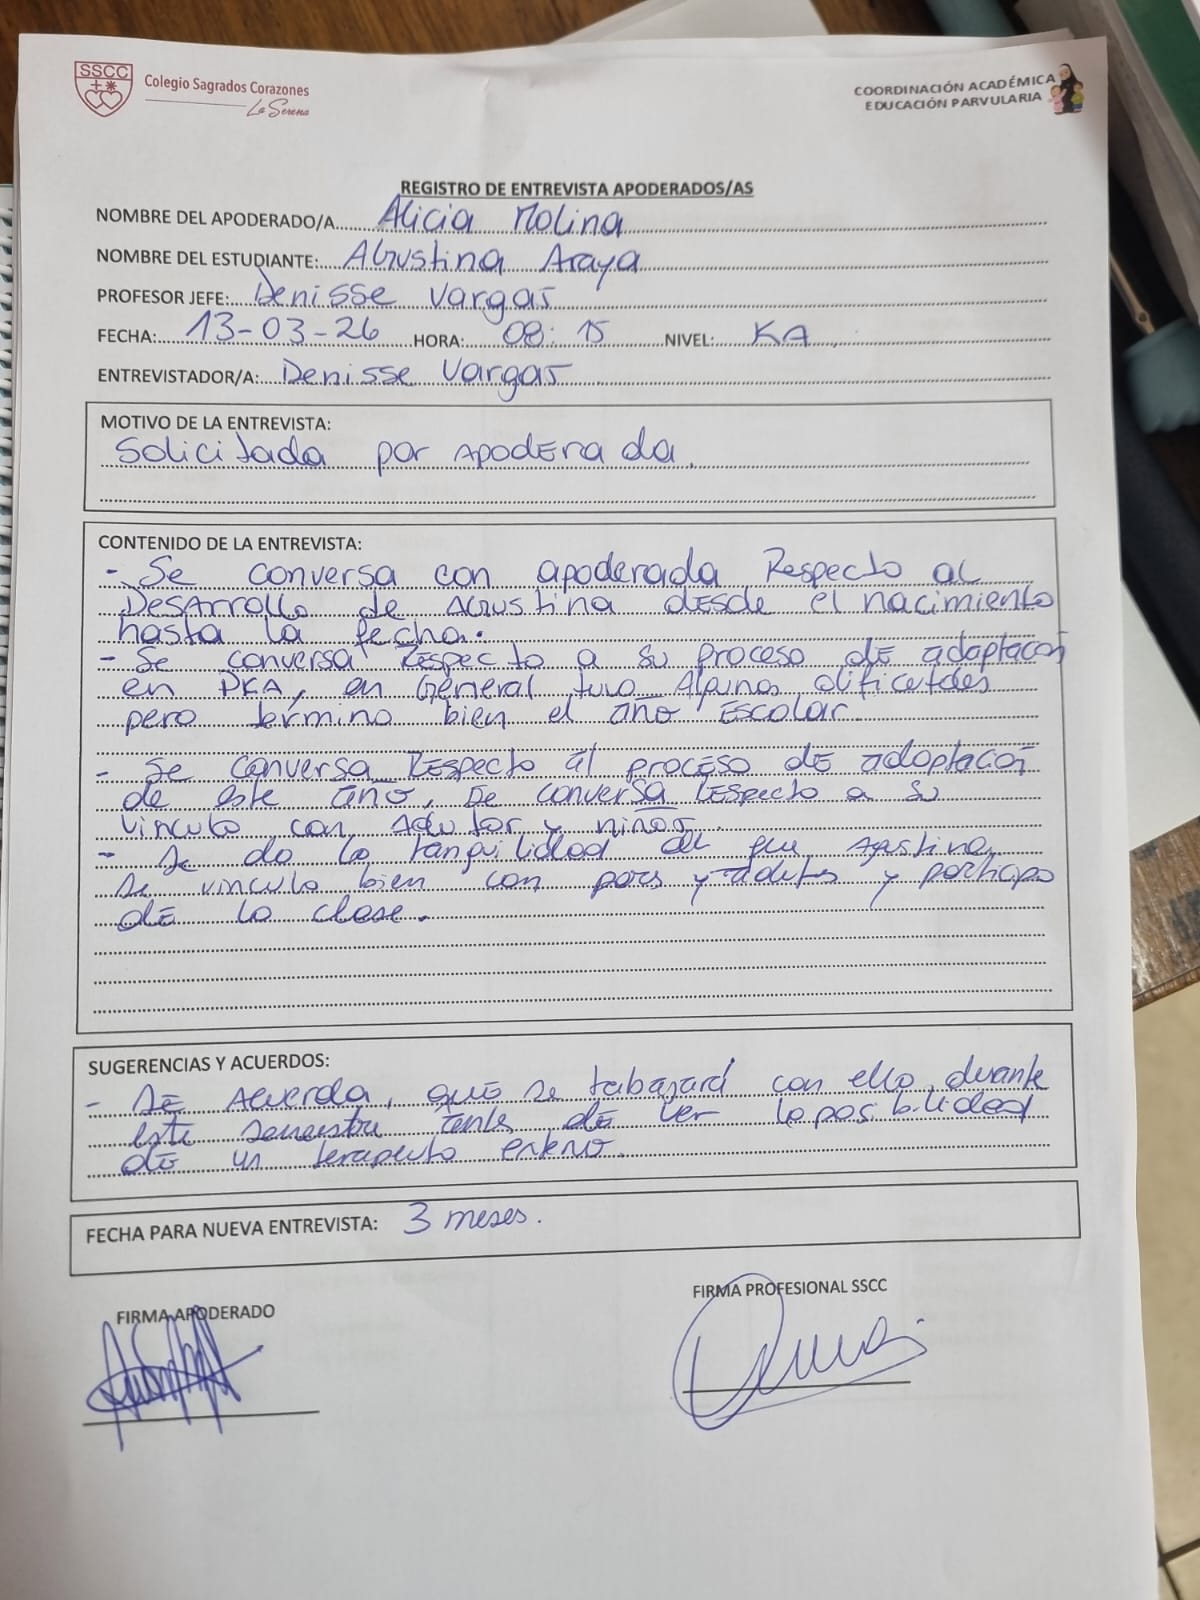 SSCC
Colegio Sagrados Corazones
La Serena
COORDINACIÓN ACADÉMICA
EDUCACIÓN PARVULARIA
REGISTRO DE ENTREVISTA APODERADOS/AS
NOMBRE DEL APODERADO/A Alicia Molina
NOMBRE DEL ESTUDIANTE: Agustina Araya
PROFESOR JEFE: Denisse Vargas
FECHA: 13-03-26 HORA: 08:15 NIVEL: KA
ENTREVISTADOR/A: Denisse Vargas
MOTIVO DE LA ENTREVISTA:
Solicitada por apoderada.
CONTENIDO DE LA ENTREVISTA:
- Se conversa con apoderada Respecto al
Desarrollo de Agustina desde el nacimiento
hasta la fecha.
- Se conversa Respecto a su proceso de adaptacion
en PKA, en General tuvo Algunas
pero termino bien el año Escolar.
- Se conversa Respecto al proceso de adaptacion
de este año, se conversa Respecto a su
vinculo con y niños.
- Se da la de que Agustina
se vincula bien con pares y adultos y participa
de la clase.
SUGERENCIAS Y ACUERDOS:
- Se Acuerda, que se trabajará con ella durante
este semestre antes de ver la posibilidad
de un terapeuta externo.
FECHA PARA NUEVA ENTREVISTA: 3 meses.
FIRMA APODERADO
FIRMA PROFESIONAL SSCC